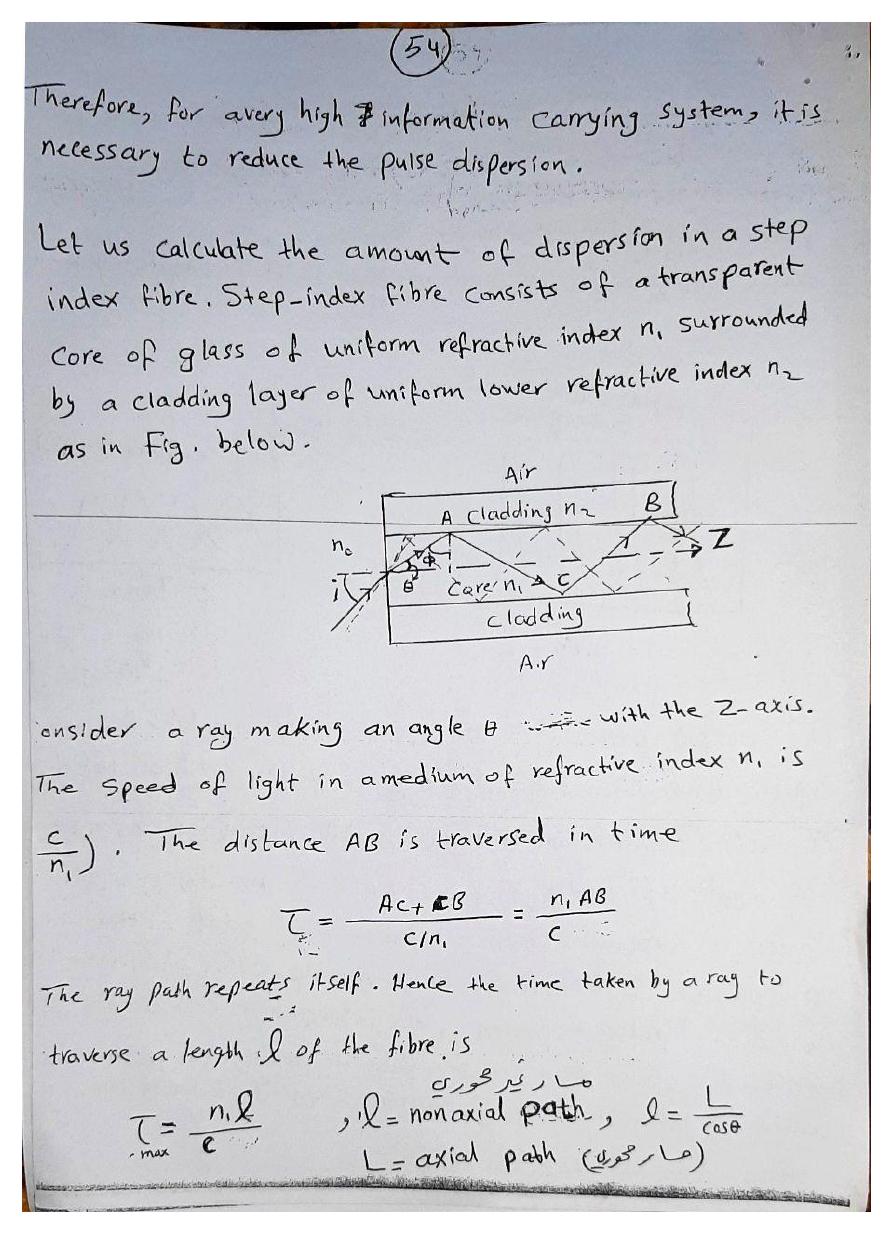 54
Therefore, for a very high information carrying system, it is
necessary to reduce the pulse dispersion.
Let us calculate the amount of dispersion in a step
index fibre. Step-index fibre consists of a transparent
core of glass of uniform refractive index n₁ surrounded
by a cladding layer of uniform lower refractive index n₂
as in Fig. below.
Air
A Cladding n₂ B
n₀
i θ Φ Core n₁ C Z
cladding
Air
onsider a ray making an angle θ with the Z-axis.
The speed of light in a medium of refractive index n₁ is
c/n₁). The distance AB is traversed in time
τ = AC + CB / C/n₁ = n₁ AB / C
The ray path repeats itself. Hence the time taken by a ray to
traverse a length l of the fibre is
مسار غير محوري
τmax = n₁l / c , l = non axial path, l = L / cosθ
L = axial path (مسار محوري)